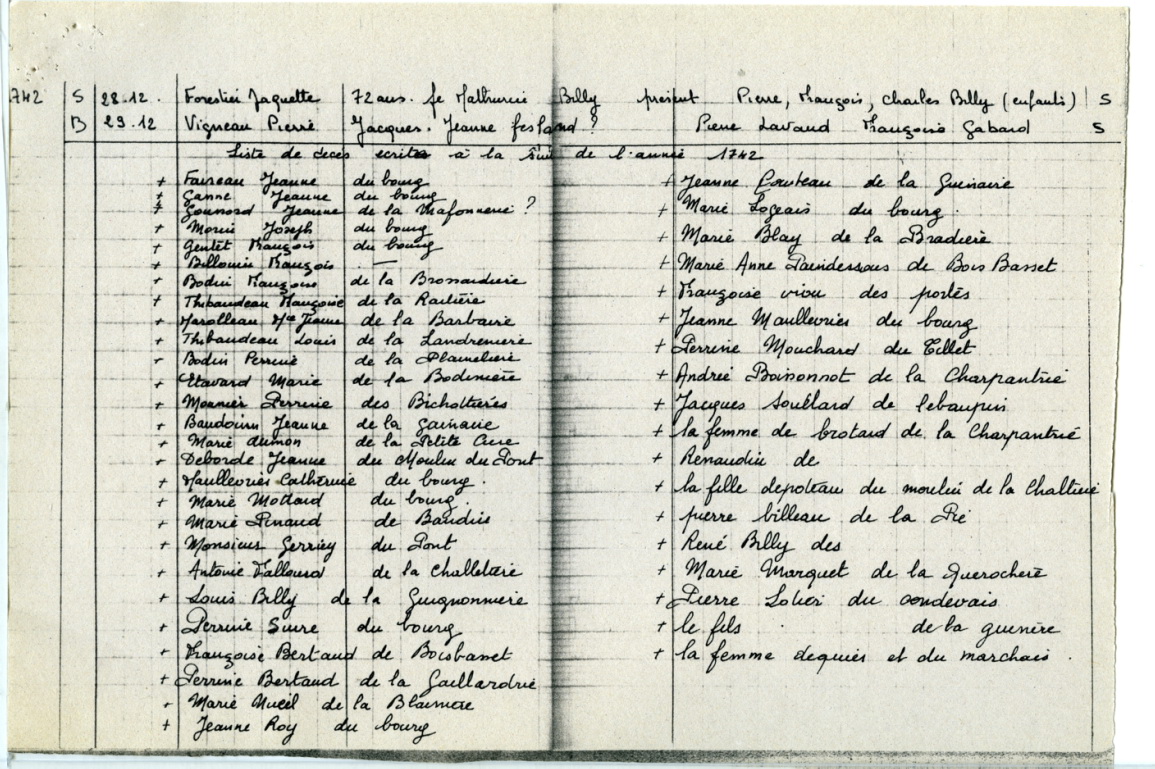 1742 S 28.12. Forestier Jaquette 72 ans. fe Mathurin Billy présent Pierre, François, Charles Billy (enfants) S
B 29.12 Vigneau Pierre Jacques. Jeanne fesland ? Pierre Lavaud Françoise Gabard S
Liste de décès ecrites à la suite de l'année 1742
+ Faireau Jeanne du bourg
+ Ganne Jeanne du bourg
+ Gounord Jeanne de la Mafonnerie ?
+ Morin Joseph du bourg
+ Gentet François du bourg
+ Billouin François —
+ Bodin Françoise de la Brossardière
+ Thibaudeau Françoise de la Ratière
+ Marolleau Mie Jeanne de la Barbaire
+ Thibaudeau Louis de la Landremière
+ Bodin Perrine de la Plamelière
+ Etavard Marie de la Bodinière
+ Mounier Perrine des Bichottières
+ Baudouin Jeanne de la gainaire
+ Marie dumon de la Petite Cure
+ Deborde Jeanne du Moulin du Pont
+ Maullevries Catherine du bourg.
+ Marie Mottard du bourg.
+ Marie Pinaud de Baudris
+ Monsieur Gerriey du Pont
+ Antonie Fallourd de la Challetrie
+ Louis Billy de la Guignonnière
+ Perrine Suire du bourg
+ Françoise Bertaud de Boisbasset
+ Perrine Bertaud de la Gaillardrie
+ Marie Nueil de la Blainière
+ Jeanne Roy du bourg
+ Jeanne Cousteau de la Guinaire
+ Marie Logeais du bourg.
+ Marie Blay de la Bradière
+ Marie Anne Paindessous de Bois Basset
+ Françoise viou des portes
+ Jeanne Maullevries du bourg
+ Perrine Mouchard du Tillet
+ Andrée Boisonnot de la Charpantrie
+ Jacques Soullard de lebaupin
+ la femme de brotard de la Charpantrie
+ Renaudin de
+ la fille depoteau du moulin de la Chaltrie
+ pierre billeau de la Pie
+ René Billy des
+ Marie Marquet de la Querochère
+ Pierre Lotier du condevais
+ le fils de la guenère
+ la femme dequies et du marchais.